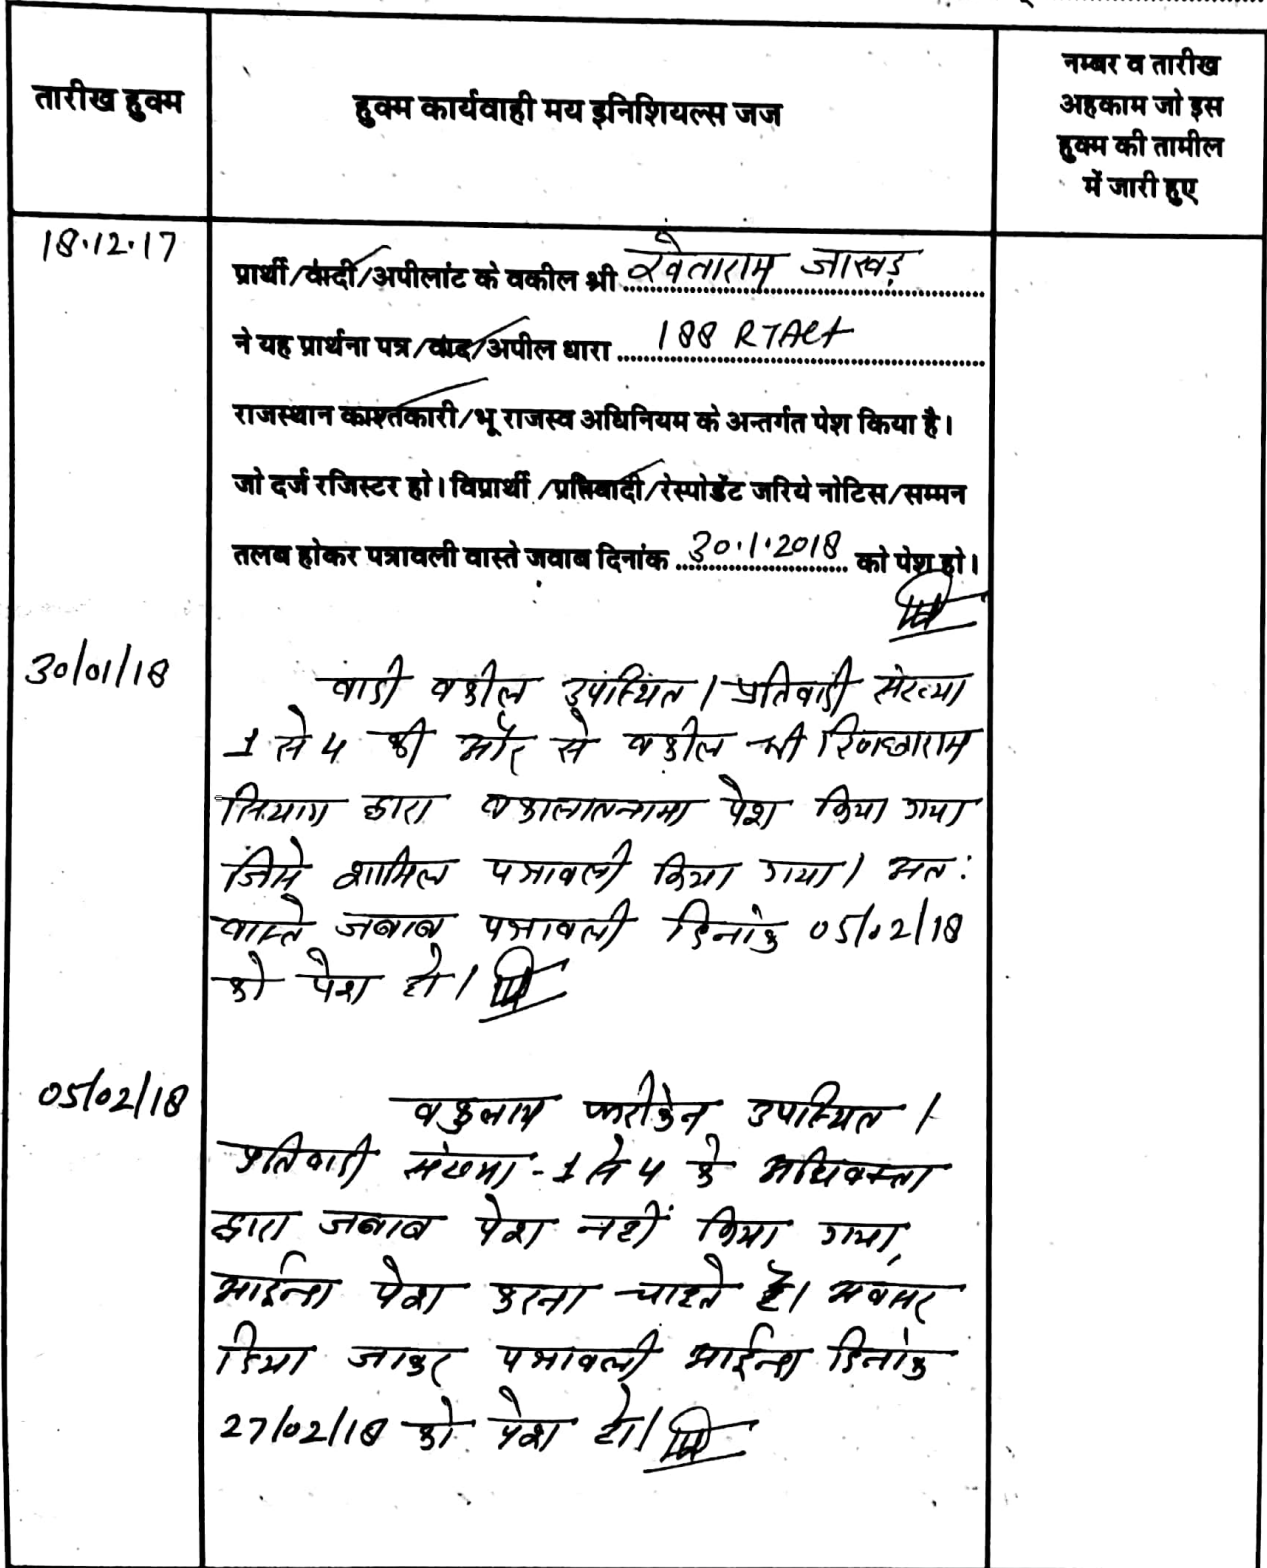 तारीख हुक्म
हुक्म कार्यवाही मय इनिशियल्स जज
नम्बर व तारीख
अहकाम जो इस
हुक्म की तामील
में जारी हुए
18.12.17
प्रार्थी/वादी/अपीलांट के वकील श्री खेताराम जाखड़
ने यह प्रार्थना पत्र/वाद/अपील धारा 188 RTAct
राजस्थान काश्तकारी/भू राजस्व अधिनियम के अन्तर्गत पेश किया है।
जो दर्ज रजिस्टर हो। विप्रार्थी/प्रतिवादी/रेस्पोडेंट जरिये नोटिस/सम्मन
तलब होकर पत्रावली वास्ते जवाब दिनांक 30.1.2018 को पेश हो।
30/01/18
वादी वकील उपस्थित। प्रतिवादी संख्या
1 से 4 की ओर से वकील श्री रिणछाराम
सियाग द्वारा वकालातनामा पेश किया गया
जिसे शामिल पत्रावली किया गया। अत:
वास्ते जबाब पत्रावली दिनांक 05/02/18
को पेश हो।
05/02/18
वकुलाय फरीकेन उपस्थित।
प्रतिवादी संख्या-1 से 4 के अधिवक्ता
द्वारा जबाब पेश नहीं किया गया,
आईन्दा पेश करना चाहते है। अवसर
दिया जाकर पत्रावली आईन्दा दिनांक
27/02/18 को पेश हो।